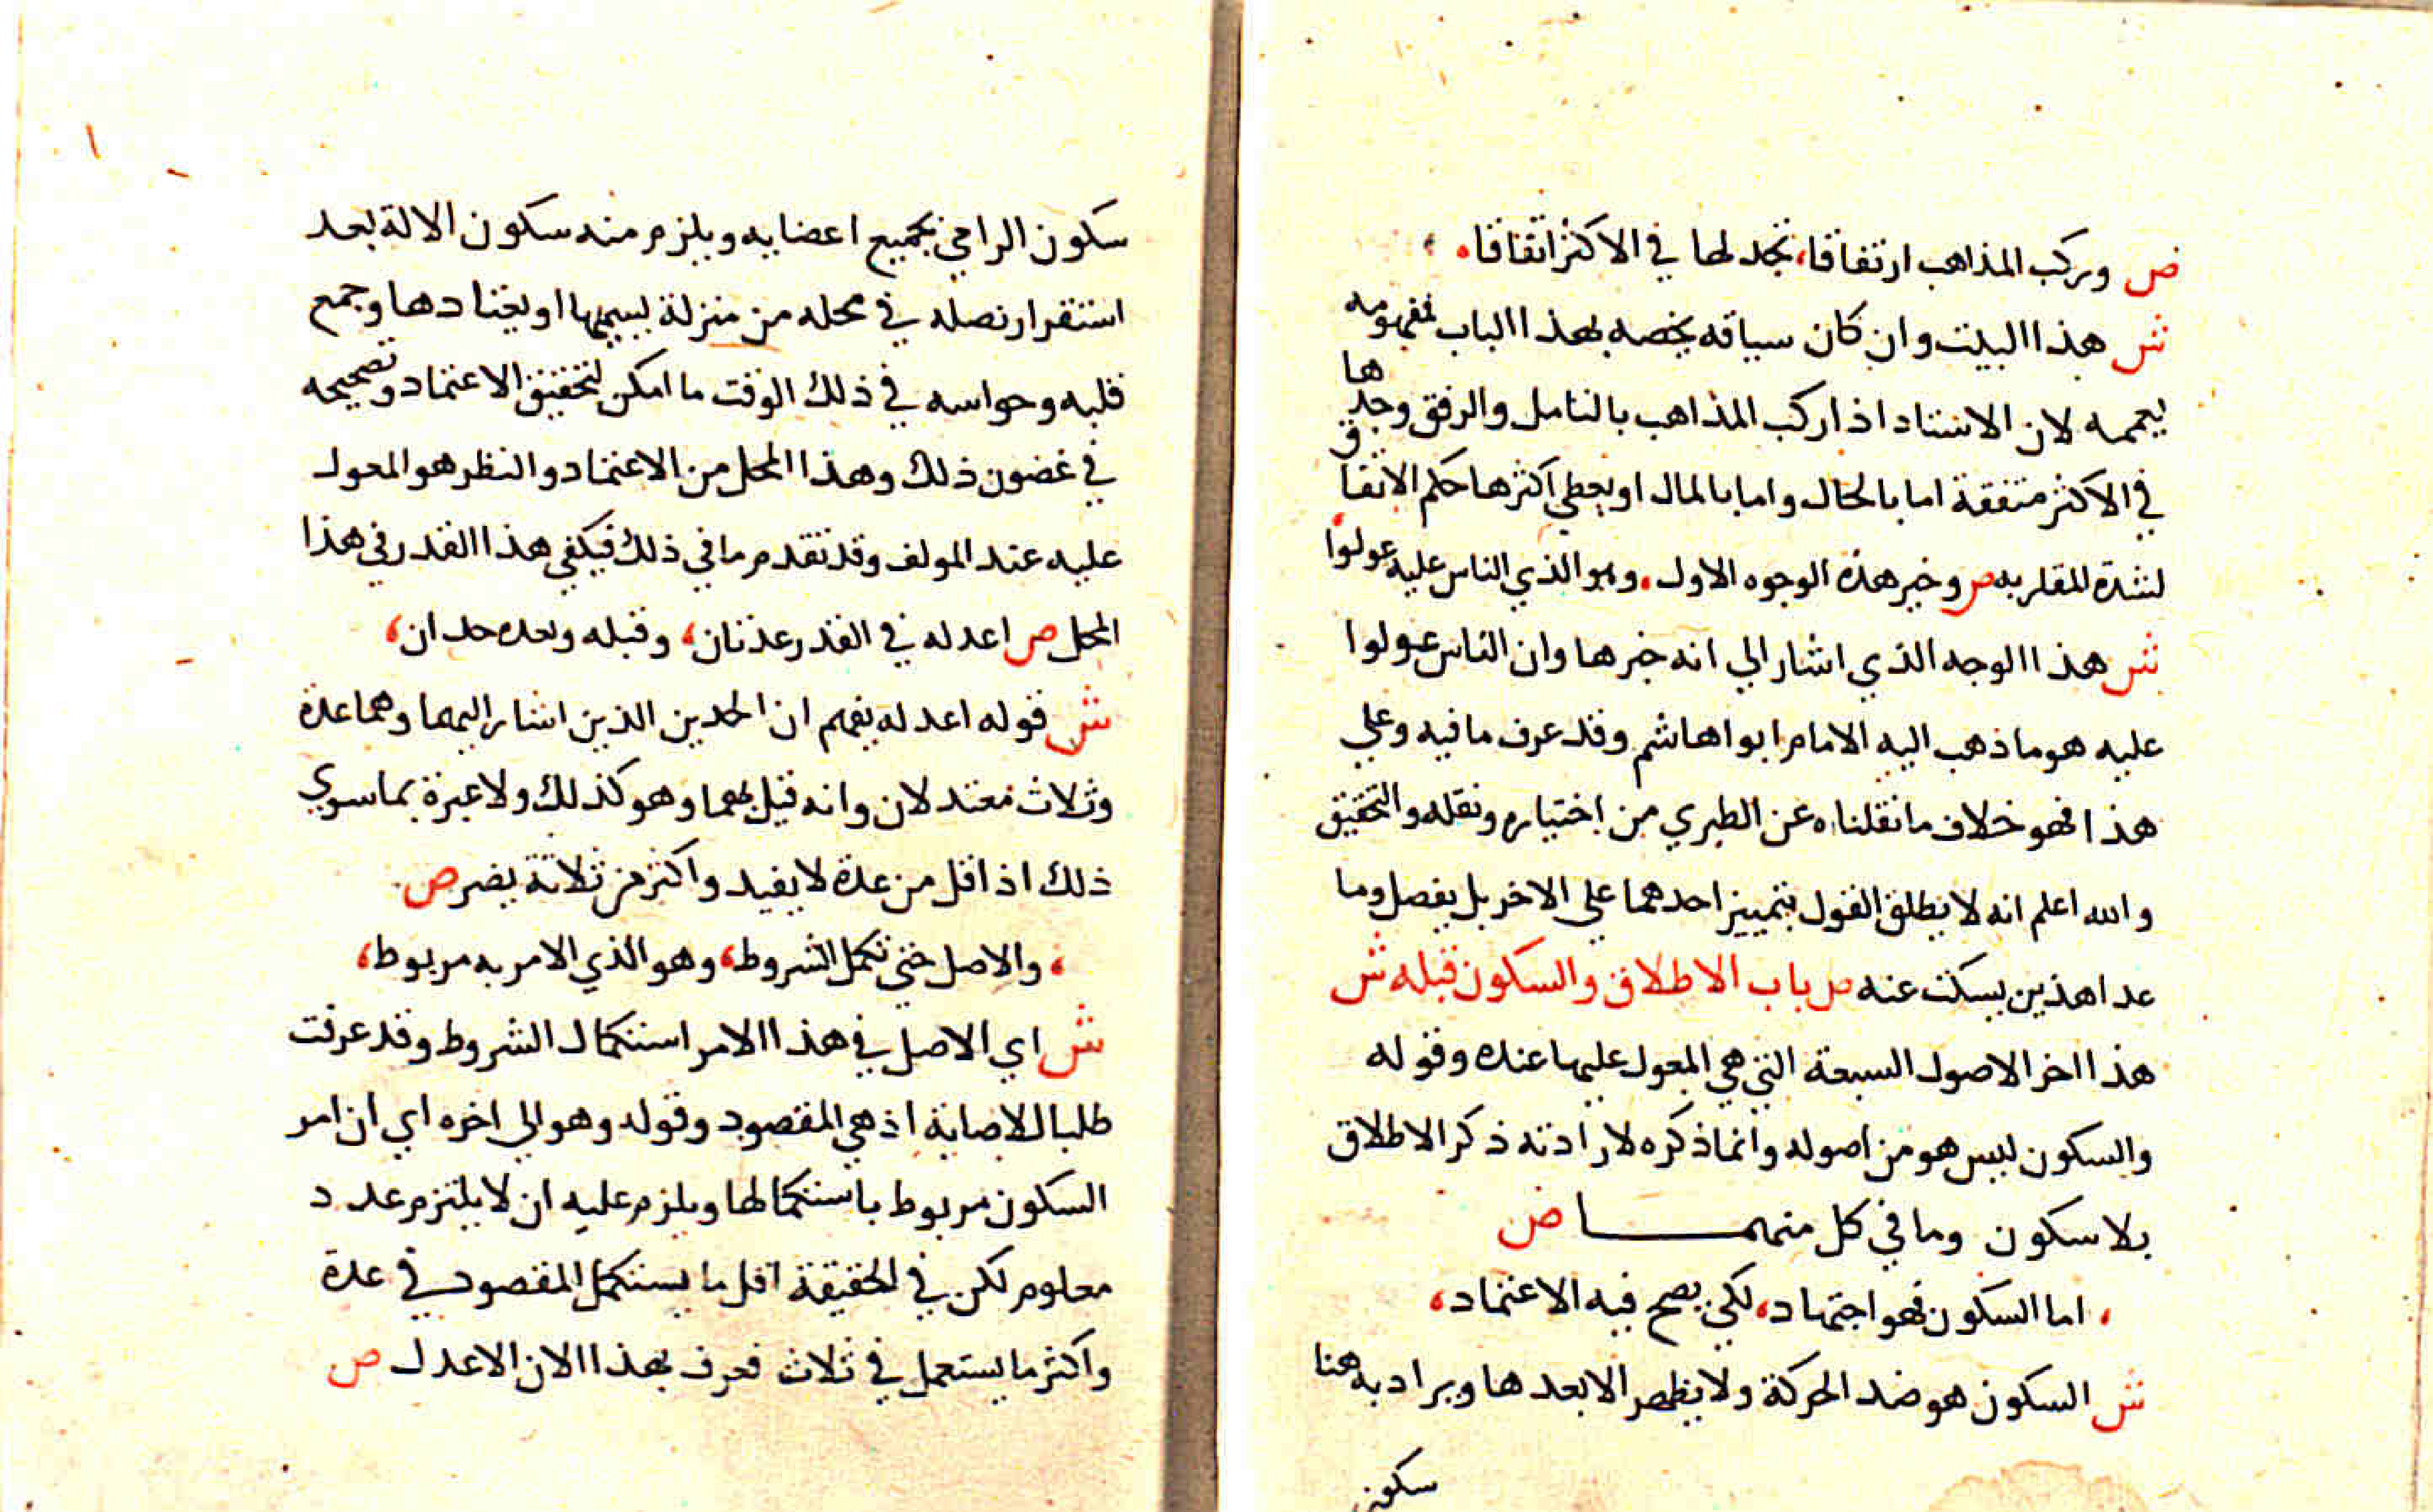 ص وركب المذاهب ارتفاقا، تجد لها في الاكثر اتفاقا،
ش هذا البيت وان كان سياقه يخصه بهذا الباب فمفهومه
يعممه لان الاستاد اذا ركب المذاهب بالتامل والرفق وجدها
في الاكثر متفقة اما بالحال واما بالمال او يعطي اكثرها حكم الاتفاق
لشدة المقاربه ص وخير هذه الوجوه الاول، وهو الذي الناس عليه عولوا
ش هذا الوجه الذي اشار الي انه خيرها وان الناس عولوا
عليه هو ما ذهب اليه الامام ابوا هاشم وقد عرف ما فيه وعلي
هذا فهو خلاف ما نقلناه عن الطبري من اختياره ونقله والتحقيق
والله اعلم انه لا يطلق القول بتمييز احدهما علي الاخر بل يفصل وما
عدا هذين يسكت عنه ص باب الاطلاق والسكون قبله ش
هذا اخر الاصول السبعة التي هي المعول عليها عنده وقوله
والسكون ليس هو من اصوله وانما ذكره لارادته ذكر الاطلاق
بلا سكون وما في كل منهما ص
، اما السكون فهو اجتهاد، لكي يصح فيه الاعتماد،
ش السكون هو ضد الحركة ولا يظهر الا بعدها ويراد به هنا
سكون
سكون الرامي بجميع اعضايه ويلزم منه سكون الالة بعد
استقرار نصله في محله من منزلة يسيمها او يعتادها وجمع
قلبه وحواسه في ذلك الوقت ما امكن لتحقيق الاعتماد وتصحيحه
في غضون ذلك وهذا المحل من الاعتماد والنظر هو المعول
عليه عند المولف وقد تقدم ما في ذلك فيكفي هذا القدر في هذا
المحل ص اعدله في القدر عدتان، وقبله وبعده حدان،
ش قوله اعدله يفهم ان الحدين الذين اشار اليهما وهما عدة
وثلاث معتدلان وانه قيل بهما وهو كذلك ولا عبرة بما سوي
ذلك اذ اقل من عدة لا يفيد واكثر من ثلاثة يضر ص
، والاصل حتي تكمل الشروط، وهو الذي الامر به مربوط،
ش اي الاصل في هذا الامر استكمال الشروط وقد عرفت
طلبا للاصابة اذ هي المقصود وقوله وهو الي اخره اي ان امر
السكون مربوط باستكمالها ويلزم عليه ان لا يلتزم عدد
معلوم لكن في الحقيقة اقل ما يستكمل المقصود في عدة
واكثر ما يستعمل في ثلاث فعرف بهذا الان الاعدل ص